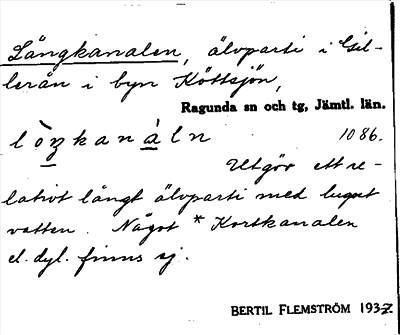 Långkanalen, älvparti i Gil-
lerån i byn Köttsjön,
Ragunda sn och tg, Jämtl. län.
lòŋkanàln 1086.
Utgör ett re-
lativt långt älvparti med lugnt
vatten. Något * Kortkanalen
el. dyl. finns ej.
BERTIL FLEMSTRÖM 1937.